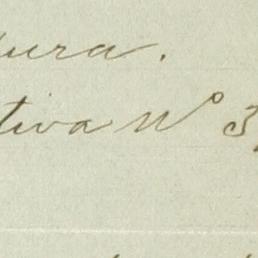 ura.
tiva Nº 3